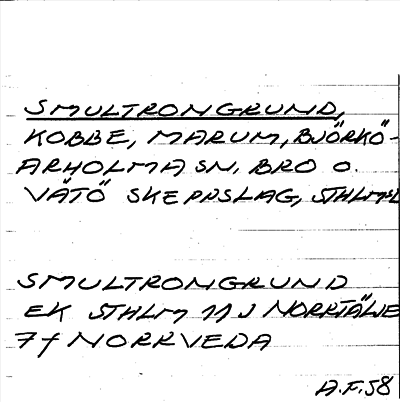 SMULTRONGRUND,
KOBBE, MARUM, BJÖRKÖ-
ARHOLMA SN. BRO O.
VÄTÖ SKEPPSLAG, STHLMSL
SMULTRONGRUND
EK STHLM 11 J NORRTÄLJE
7f NORRVEDA
A.F. 58